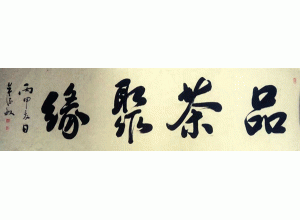 品茶聚缘
丙申夏日